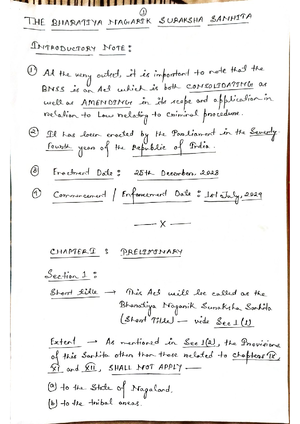 ①
THE BHARATIYA NAGARIK SURAKSHA SANHITA
INTRODUCTORY NOTE:
① At the very outset, it is important to note that the
BNSS is an Act which is both CONSOLIDATING as
well as AMENDING in its scope and application in
relation to Law relating to criminal procedure.
② It has been enacted by the Parliament in the Seventy
fourth year of the Republic of India.
③ Enactment Date: 25th December 2023
④ Commencement / Enforcement Date: 1st July, 2024
— X —
CHAPTER I : PRELIMINARY
Section 1:
Short title → This Act will be called as the
Bharatiya Nagarik Suraksha Sanhita
(Short Title) — vide Sec 1(1)
Extent → As mentioned in Sec 1(2), the Provisions
of this Sanhita other than those related to chapters IX
XI and XII, SHALL NOT APPLY —
(a) to the State of Nagaland,
(b) to the tribal areas.